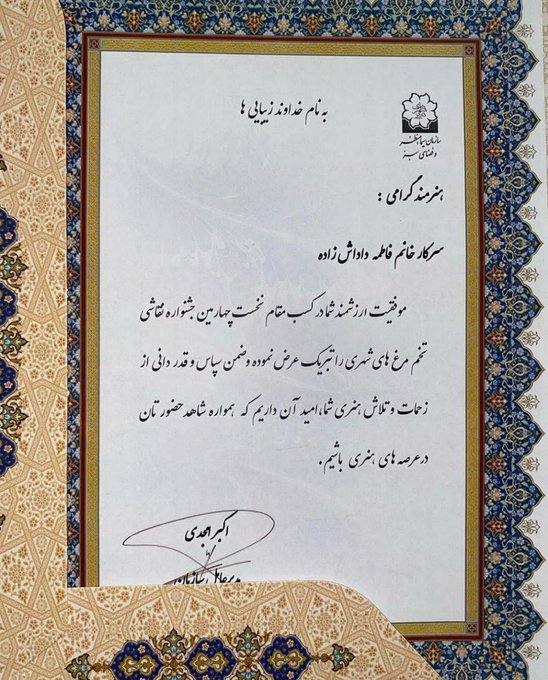 به نام خداوند زیبایی ها
سازمان سیما منظر
و فضای سبز
هنرمند گرامی :
سرکار خانم فاطمه داداش زاده
موفقیت ارزشمند شما در کسب مقام نخست چهارمین جشنواره نقاشی
تخم مرغ های شهری را تبریک عرض نموده و ضمن سپاس و قدر دانی از
زحمات و تلاش هنری شما، امید آن داریم که همواره شاهد حضور تان
در عرصه های هنری باشیم.
اکبر امجدی
مدیر عامل سازمان